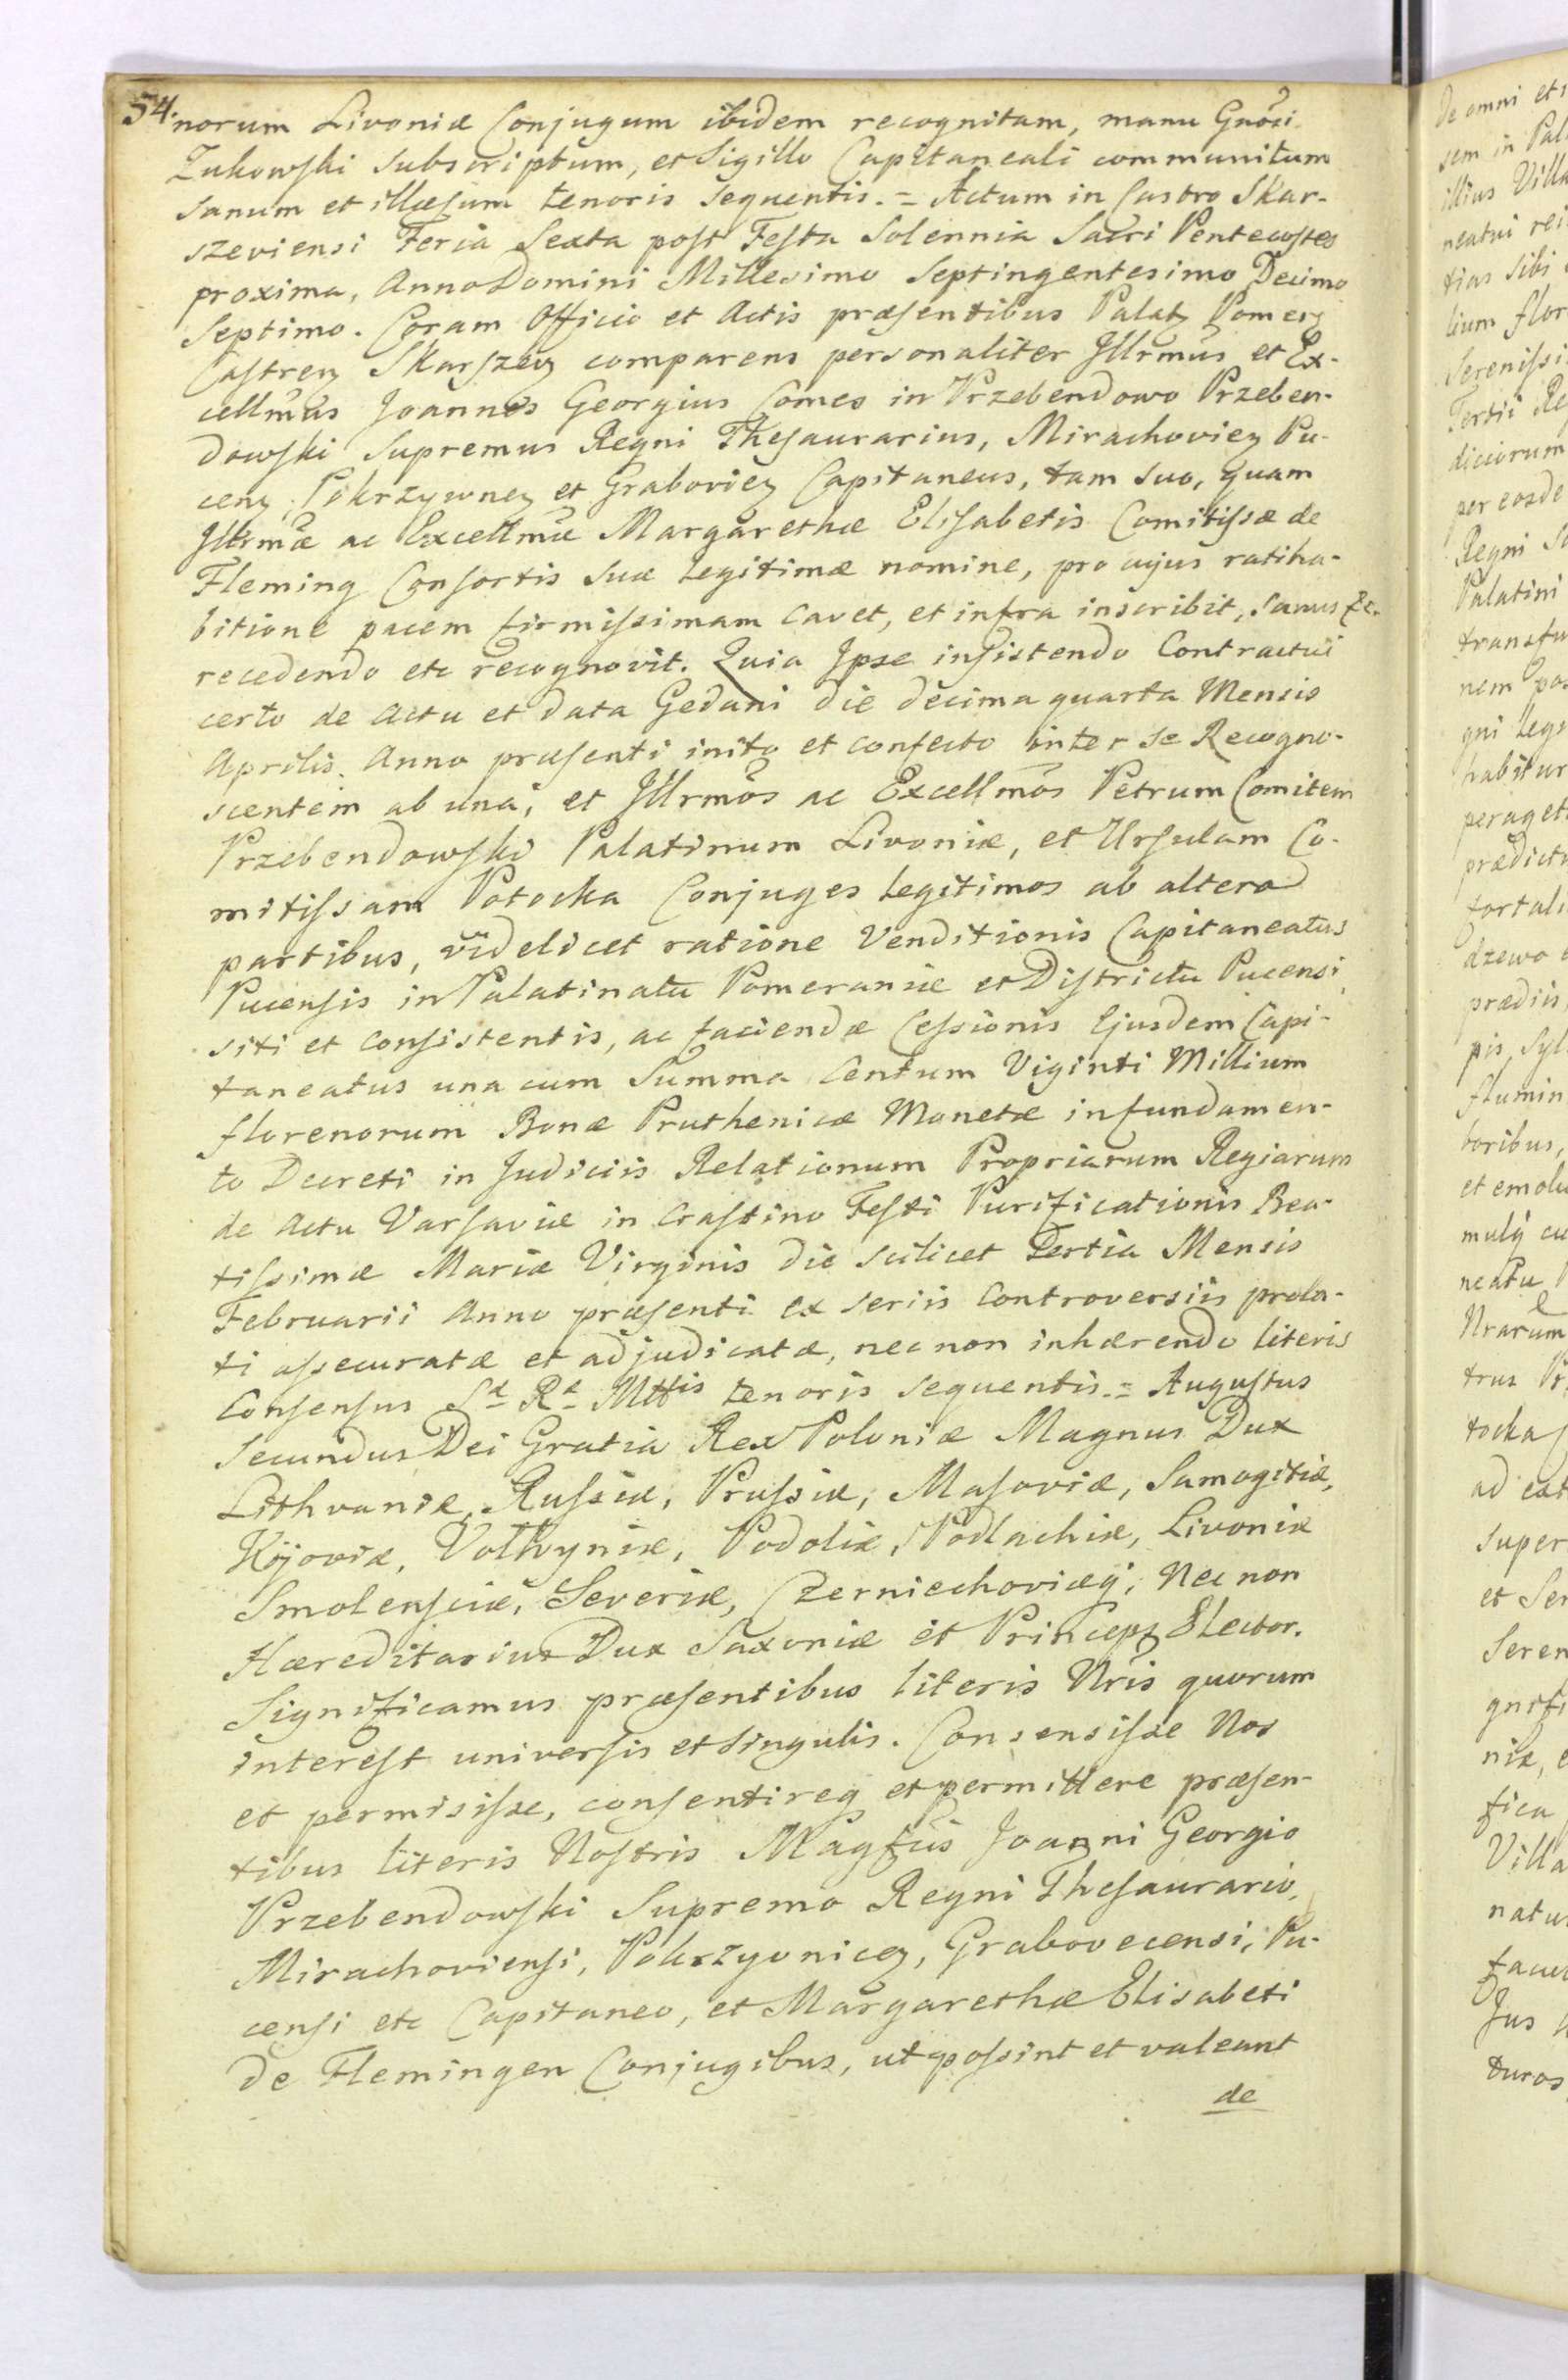 54.
norum Livoniæ Conjugum ibidem recognitam, manu Gnosi
Zukowski subscriptum, et Sigillo Capitaneali communitum
sanum et illæsum tenoris sequentis. = Actum in Castro Skar-
szeviensi Feria Sexta post Festa Solennia Sacri Pentecostes
proxima, Anno Domini Millesimo Septingentesimo Decimo
Septimo. Coram Officio et Actis præsentibus Palatz Pomerz
Castrenz Skarszevz comparens personaliter Jllrmus et Ex-
cellmus Joannes Georgius Comes in Przebendowo Przeben-
dowski Supremus Regni Thesaurarius, Mirachoviez Pu-
cenz, Pokrzywnez et Graboviez Capitaneus, tam suo, quam
Jllrmæ ac Excellmæ Margarethæ Elisabetis Comitissæ de
Fleming Consortis suæ legitimæ nomine, pro cujus ratiha-
bitione pacem firmissimam cavet, et infra inscribit, sanus etc.
recedendo etc recognovit. Quia Jpse insistendo Contractui
certo de actu et data Gedani die decima quarta Mensis
Aprilis Anno præsenti inito et confecto inter se Recogno-
scentem ab una, et Jllrmos ac Excellmos Petrum Comitem
Przebendowski Palatinum Livoniæ, et Ursulam Co-
mitissam Potocka Conjuges legitimos ab altera
partibus, videlicet ratione Venditionis Capitaneatus
Pucensis in Palatinatu Pomeraniæ et Districtu Pucensi,
siti et consistentis, ac faciendæ Cessionis Ejusdem Capi-
taneatus una cum Summa Centum Viginti Millium
florenorum Bonæ Pruthenicæ Monetæ in fundamen-
to Decreti in Judiciis Relationum Propriarum Regiarum
de Actu Varsaviæ in Crastino Festi Purificationis Bea-
tissimæ Mariæ Virginis die scilicet Tertia Mensis
Februarii Anno præsenti ex seriis Controversiis prola-
ti assecuratæ et adjudicatæ, nec non inhærendo literis
Consensus Sæ Ræ Mttis tenoris sequentis. = Augustus
Secundus Dei Gratia Rex Poloniæ Magnus Dux
Lithvaniæ, Russiæ, Prussiæ, Masoviæ, Samogitiæ,
Kijoviæ, Volhyniæ, Podoliæ, Podlachiæ, Livoniæ
Smolensciæ, Severiæ, Czerniechoviæq, Nec non
Hæreditarius Dux Saxoniæ et Princeps Elector.
Significamus præsentibus literis Nris quorum
interest universis et singulis. Consensisse Nos
et permisisse, consentireq et permittere præsen-
tibus literis Nostris Magfcis Joanni Georgio
Przebendowski Supremo Regni Thesaurario,
Mirachoviensi, Pokrzywnicz, Grabovecensi, Pu-
censi etc Capitaneo, et Margarethæ Elisabeti
de Flemingen Conjugibus, ut possint et valeant
de
De omni et
sem in Pal
illius Villa
neatui rei
tias sibi
lium flor
Serenissi
Tertii Re
diciorum
per eosde
Regni
Palatini
transfu
nem
gni legi
habitur
peraget
prædictu
fortali
dzewo
prædiis
pis, syl
flumin
boribus,
et emolu
mulq cu
neatu
Nrarum
trus
tocka
ad ext
super
et Ser
Seren
gnifi
niæ,
fica
Villa
natu
facul
Jus
turos